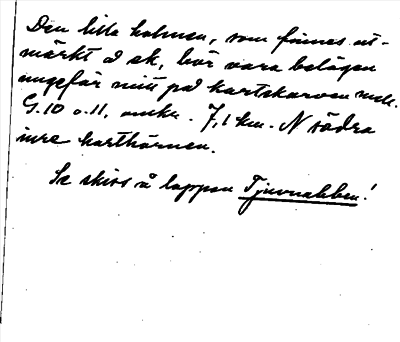 Den lilla holmen, som finnes ut-
märkt å ek, bör vara belägen
ungefär mitt på kartskarven mell.
G.10 o.11, omkr. 7,1 km. N södra
inre karthörnen.
Se skiss å lappen Tjuvnabben!